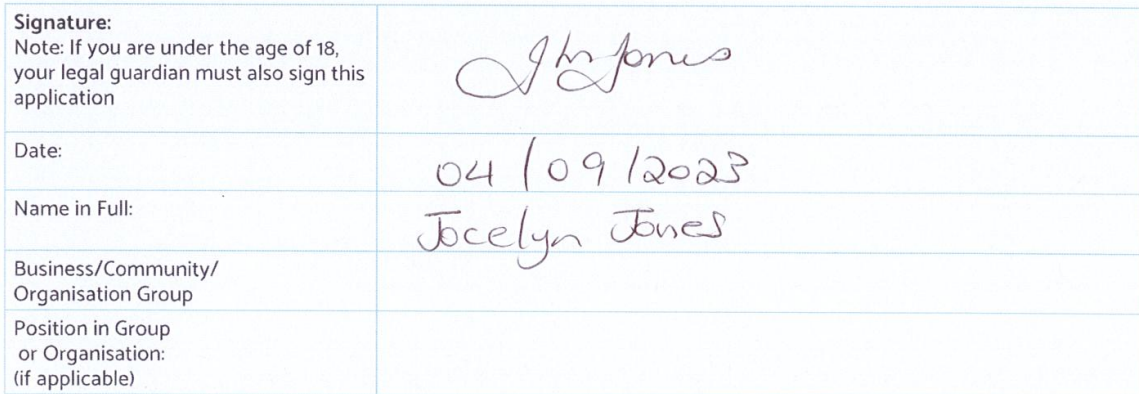 Signature:
Note: If you are under the age of 18,
your legal guardian must also sign this
application
Jones
Date:
04/09/2023
Name in Full:
Jocelyn Jones
Business/Community/
Organisation Group
Position in Group
or Organisation:
(if applicable)